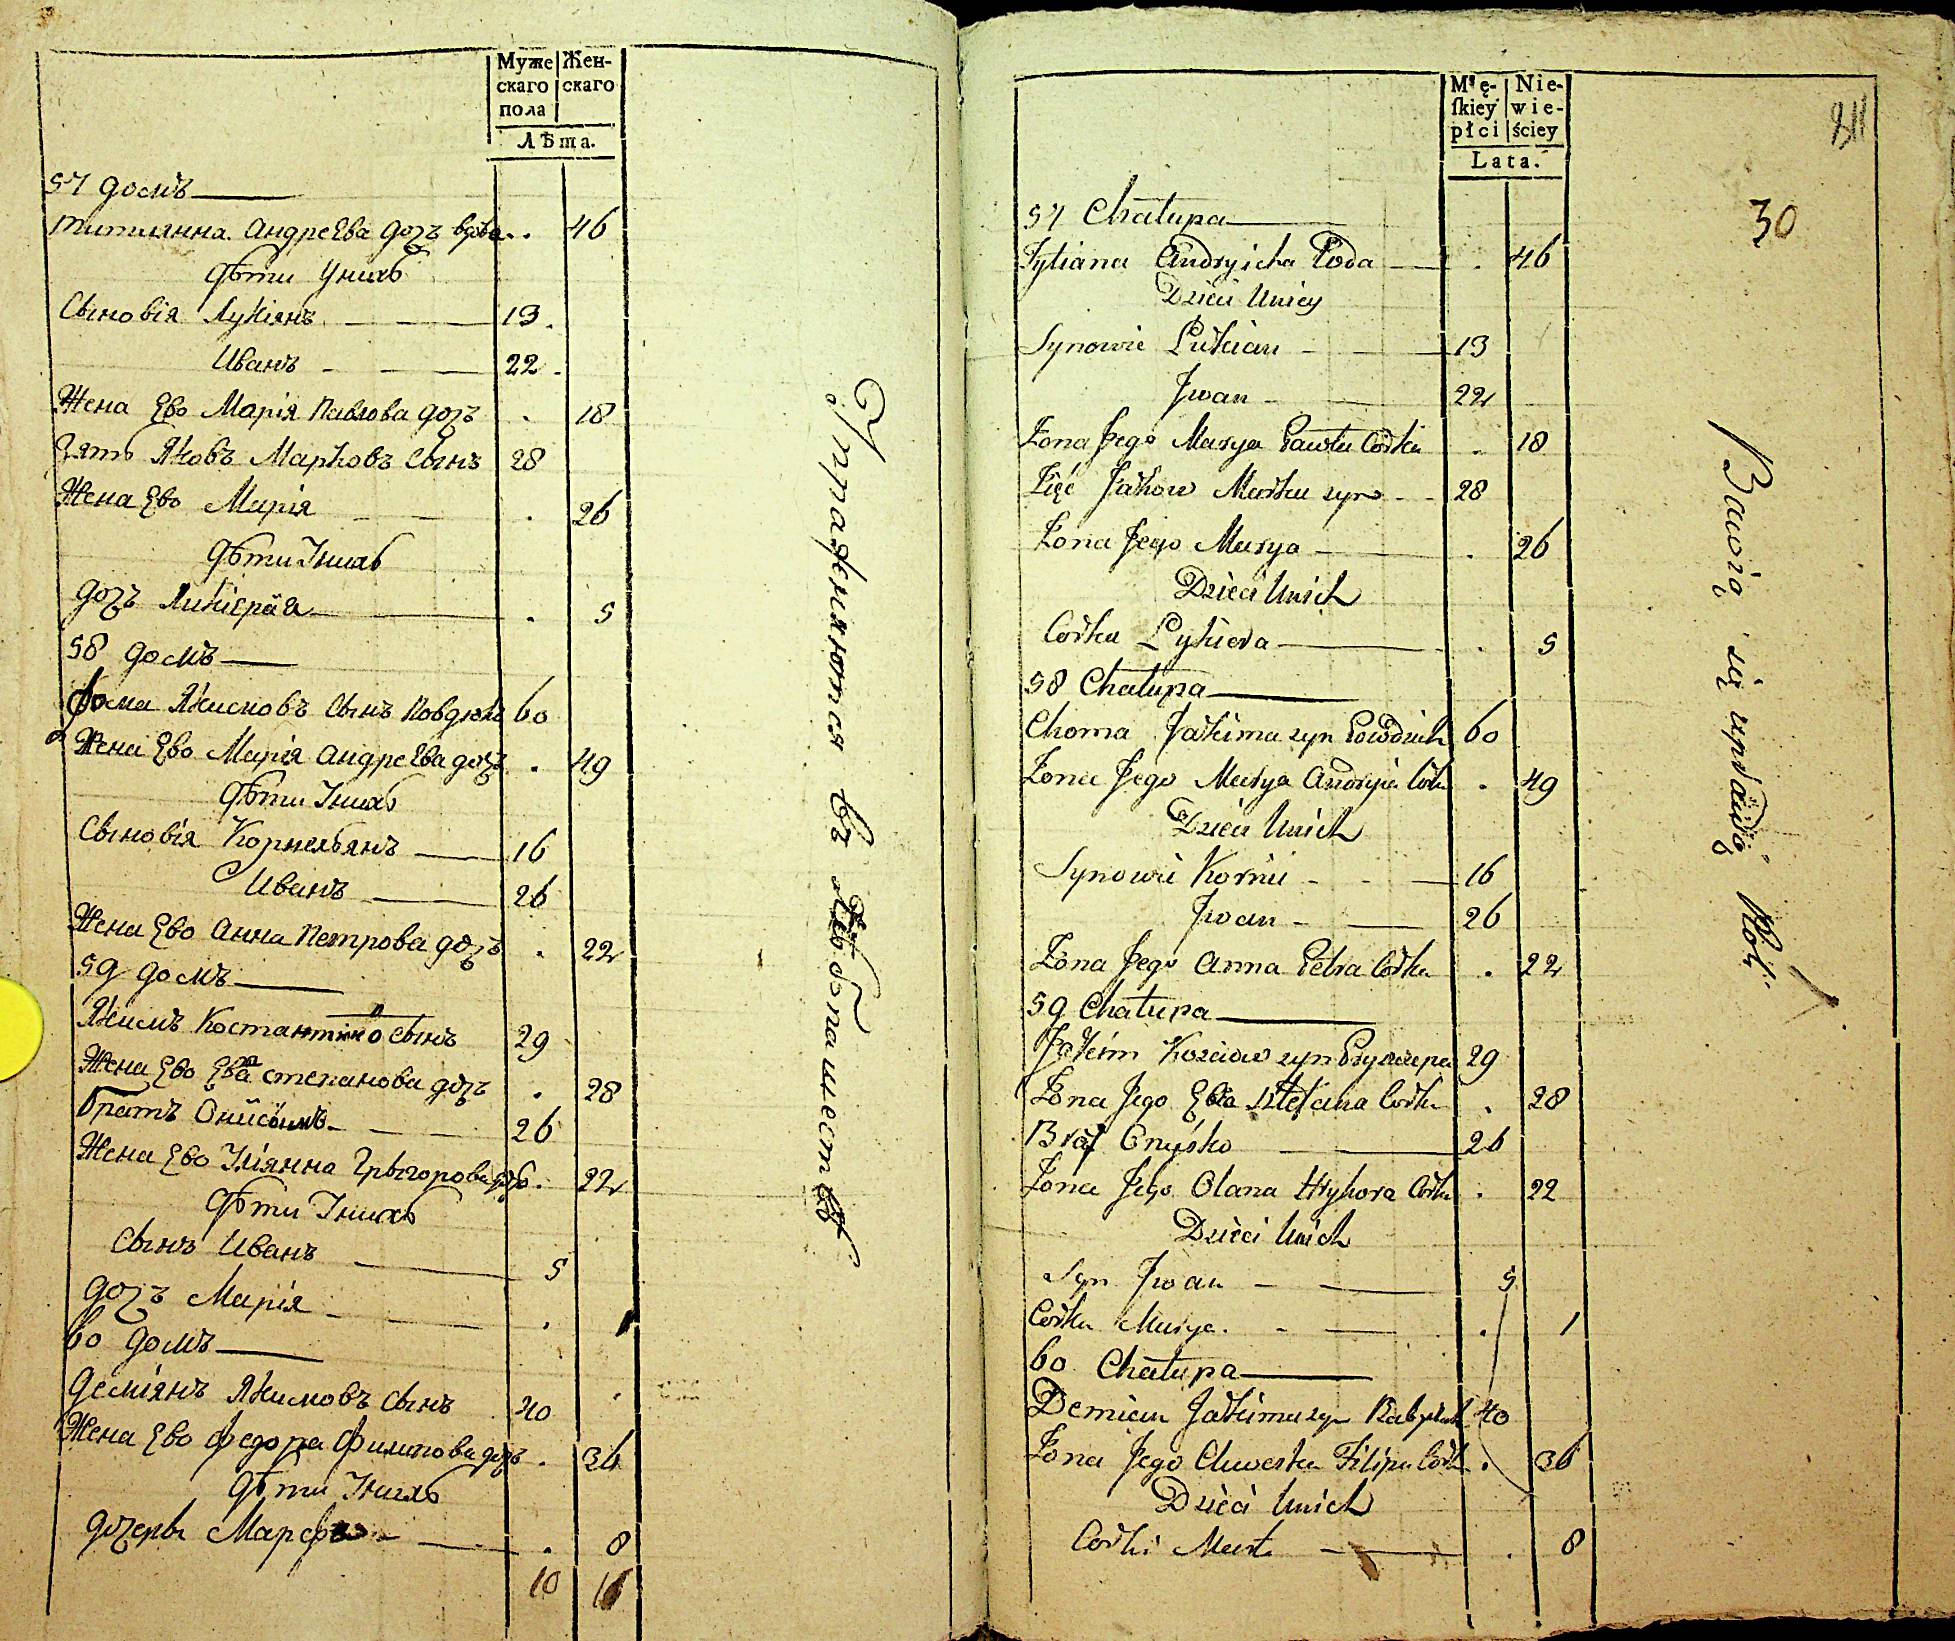 Муже Жен-
скаго скаго
пола
Лѣта.
57 домъ
Титиянна Андреева дочъ вдова 46
Дѣти Унихъ
Сыновія Лукіянъ 13
Иванъ 22
Жена Ево Марія Павлова дочъ 18
Зять Яковъ Марковъ Сынъ 28
Жена Ево Марія 26
Дѣти Унихъ
дочъ 5
58 домъ
Фома Якимовъ Сынъ 60
Жена Ево Марія Андреева дочъ 49
Дѣти Унихъ
Сыновія Корнельянъ 16
Иванъ 26
Жена Ево Анна Петрова дочъ 22
59 домъ
Якимъ Сынъ 29
Жена Ево Евва Степанова дочъ 28
Братъ Онисимъ 26
Жена Ево Уліянна Грыгорова дочъ 22
Дѣти Унихъ
Сынъ Иванъ 5
дочъ Марія 1
60 домъ
Деміянъ Якимовъ Сынъ 40
Жена Ево Федора Филипова дочъ 36
Дѣти Унихъ
дочеры Марфа 8
10 16
Упражняются въ хлѣбопашествѣ
Mę- Nie-
skiey wie-
płci ściey
Lata.
30
57 Chałupa
Tytiana Andryicha Wdowa 46
Dzieci Unicy
Synowie Łukian 13
Jwan 22
Zona Jego Marya Pawła Corka 18
Zięć Jakow Marka syn 28
Zona Jego Marya 26
Dzieci Unich
Corka Łykiera 5
58 Chałupa
Choma Jakima syn 60
Zona Jego Marya Andryia Corka 49
Dzieci Unich
Synowie Kornii 16
Jwan 26
Zona Jego Anna Petra Corka 22
59 Chałupa
Jakim syn Pryszczepa 29
Zona Jego Ewa Stefana Corka 28
Brat Onyśko 26
Zona Jego Olana Hryhora Corka 22
Dzieci Unich
Syn Jwan 5
Corka Marya 1
60 Chałupa
Demian Jakima syn 40
Zona Jego Chweska Filipa Corka 36
Dzieci Unich
Corki Marta 8
Bawią się uprawią Roli